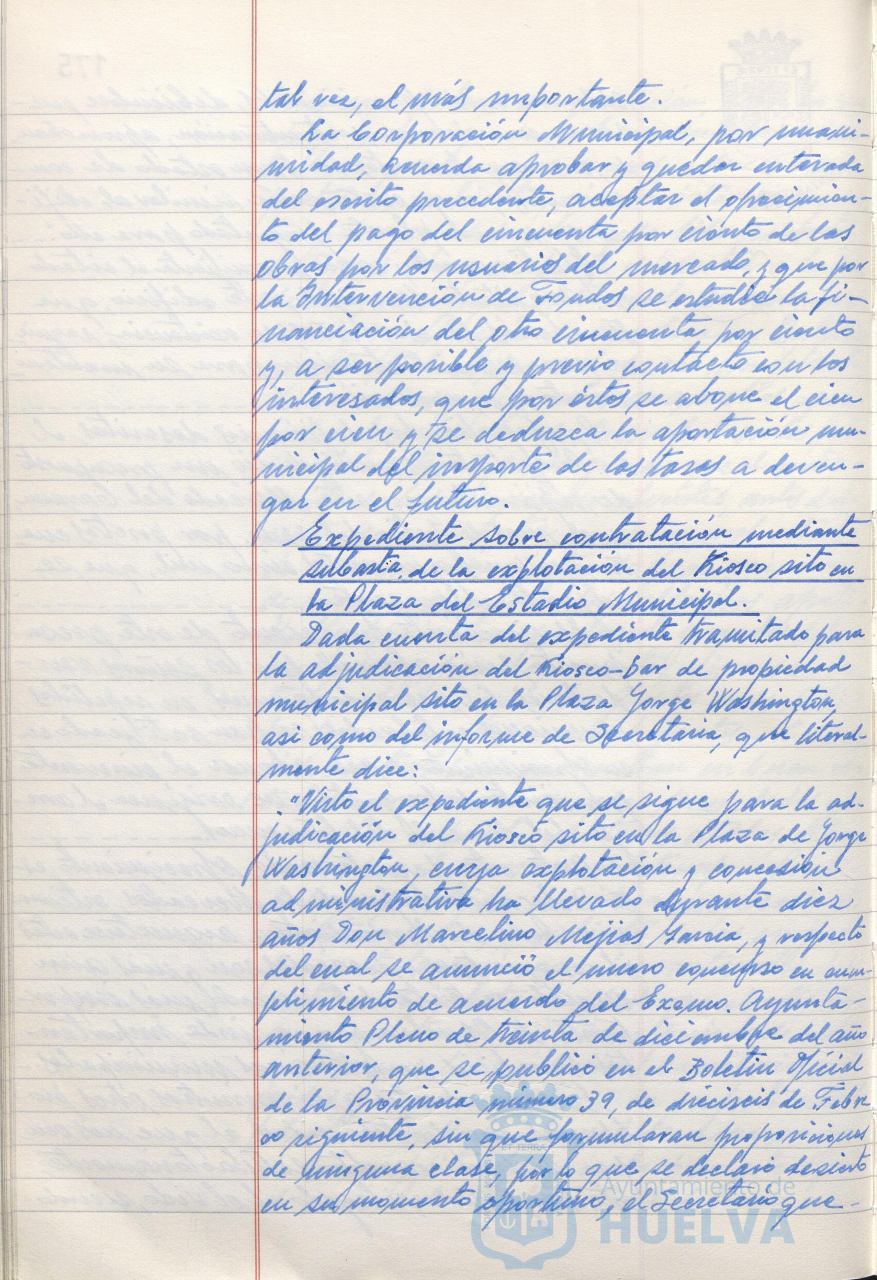 tal vez, el más importante.
La Corporación Municipal, por unani-
midad, acuerda aprobar y quedar enterada
del escrito precedente, aceptar el ofrecimien-
to del pago del cincuenta por ciento de las
obras por los usuarios del mercado, y que por
la Intervención de Fondos se estudie la fi-
nanciación del otro cincuenta por ciento
y, a ser posible y previo contacto con los
interesados, que por éstos se abone el cien
por cien y se deduzca la aportación mu-
nicipal del importe de las tasas a deven-
gar en el futuro.
Expediente sobre contratación mediante
subasta, de la explotación del Kiosco sito en
la Plaza del Estadio Municipal.
Dada cuenta del expediente tramitado para
la adjudicación del Kiosco-bar de propiedad
municipal sito en la Plaza Jorge Washington,
asi como del informe de Secretaria, que literal-
mente dice:
"Visto el expediente que se sigue para la ad-
judicación del Kiosco sito en la Plaza de Jorge
Washington, cuya explotación y concesión
administrativa ha llevado durante diez
años Don Marcelino Mejias Garcia, y respecto
del cual se anunció el nuevo concurso en cum-
plimiento de acuerdo del Excmo. Ayunta-
miento Pleno de treinta de diciembre del año
anterior, que se publicó en el Boletin Oficial
de la Provincia número 39, de dieciseis de Febre
ro siguiente, sin que formularan proposiciones
de ninguna clase, por lo que se declaró desierto
en su momento oportuno, el Secretario que-
Ayuntamiento de
HUELVA